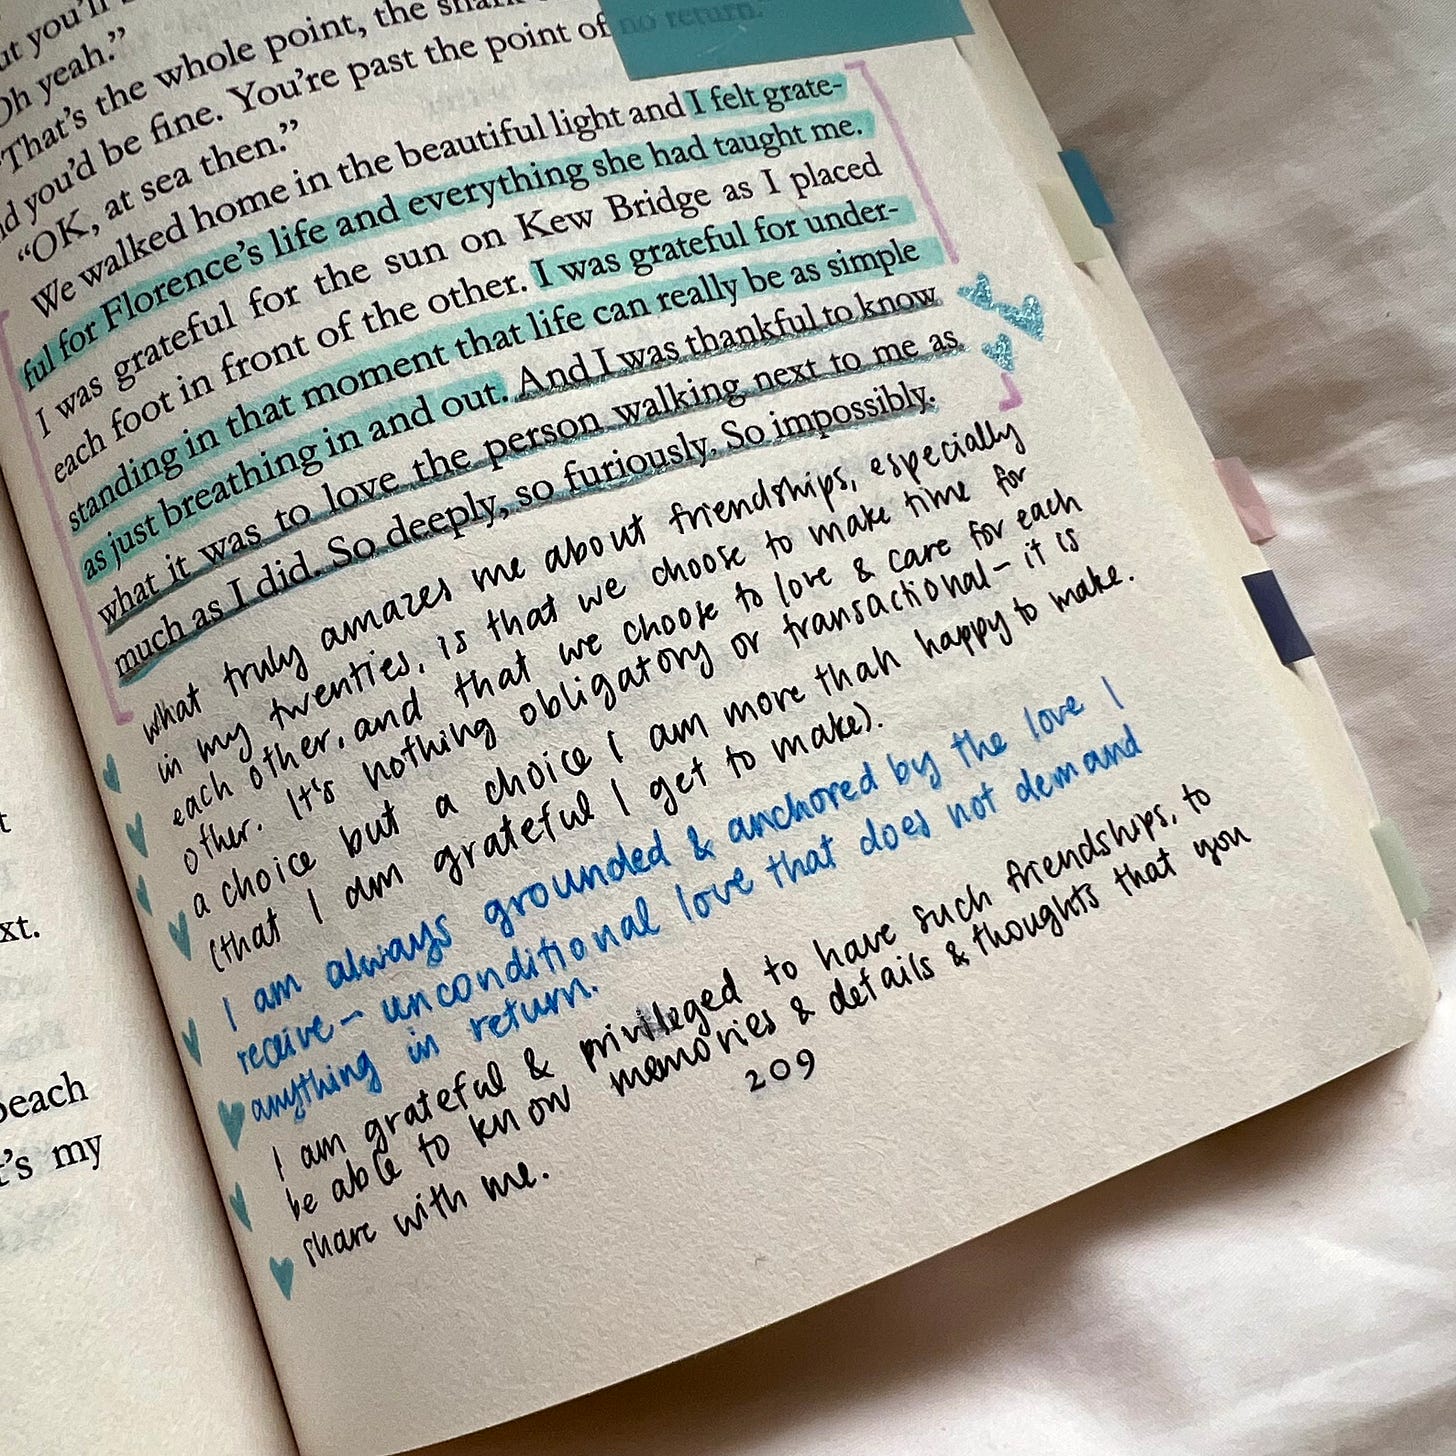 ut you'll
Oh yeah."
"That's the whole point, the
nd you'd be fine. You're past the point of no return."
"OK, at sea then."
We walked home in the beautiful light and I felt grate-
ful for Florence's life and everything she had taught me.
I was grateful for the sun on Kew Bridge as I placed
each foot in front of the other. I was grateful for under-
standing in that moment that life can really be as simple
as just breathing in and out. And I was thankful to know
what it was to love the person walking next to me as
much as I did. So deeply, so furiously. So impossibly.
What truly amazes me about friendships, especially
in my twenties, is that we choose to make time for
each other, and that we choose to love & care for each
other. It's nothing obligatory or transactional – it is
a choice but a choice I am more than happy to make.
(that I am grateful I get to make).
I am always grounded & anchored by the love I
receive – unconditional love that does not demand
anything in return.
I am grateful & privileged to have such friendships, to
be able to know memories & details & thoughts that you
share with me.
209
t
xt.
beach
t's my